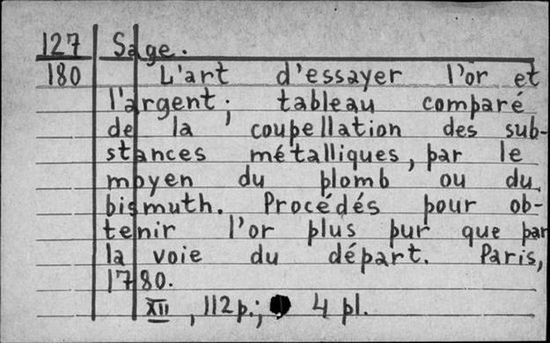 127 Sage.
180 L'art d'essayer l'or et
l'argent; tableau comparé
de la coupellation des sub-
stances métalliques, par le
moyen du plomb ou du
bismuth. Procédés pour ob-
tenir l'or plus pur que par
la voie du départ. Paris,
1780.
XII, 112p.; 4 pl.